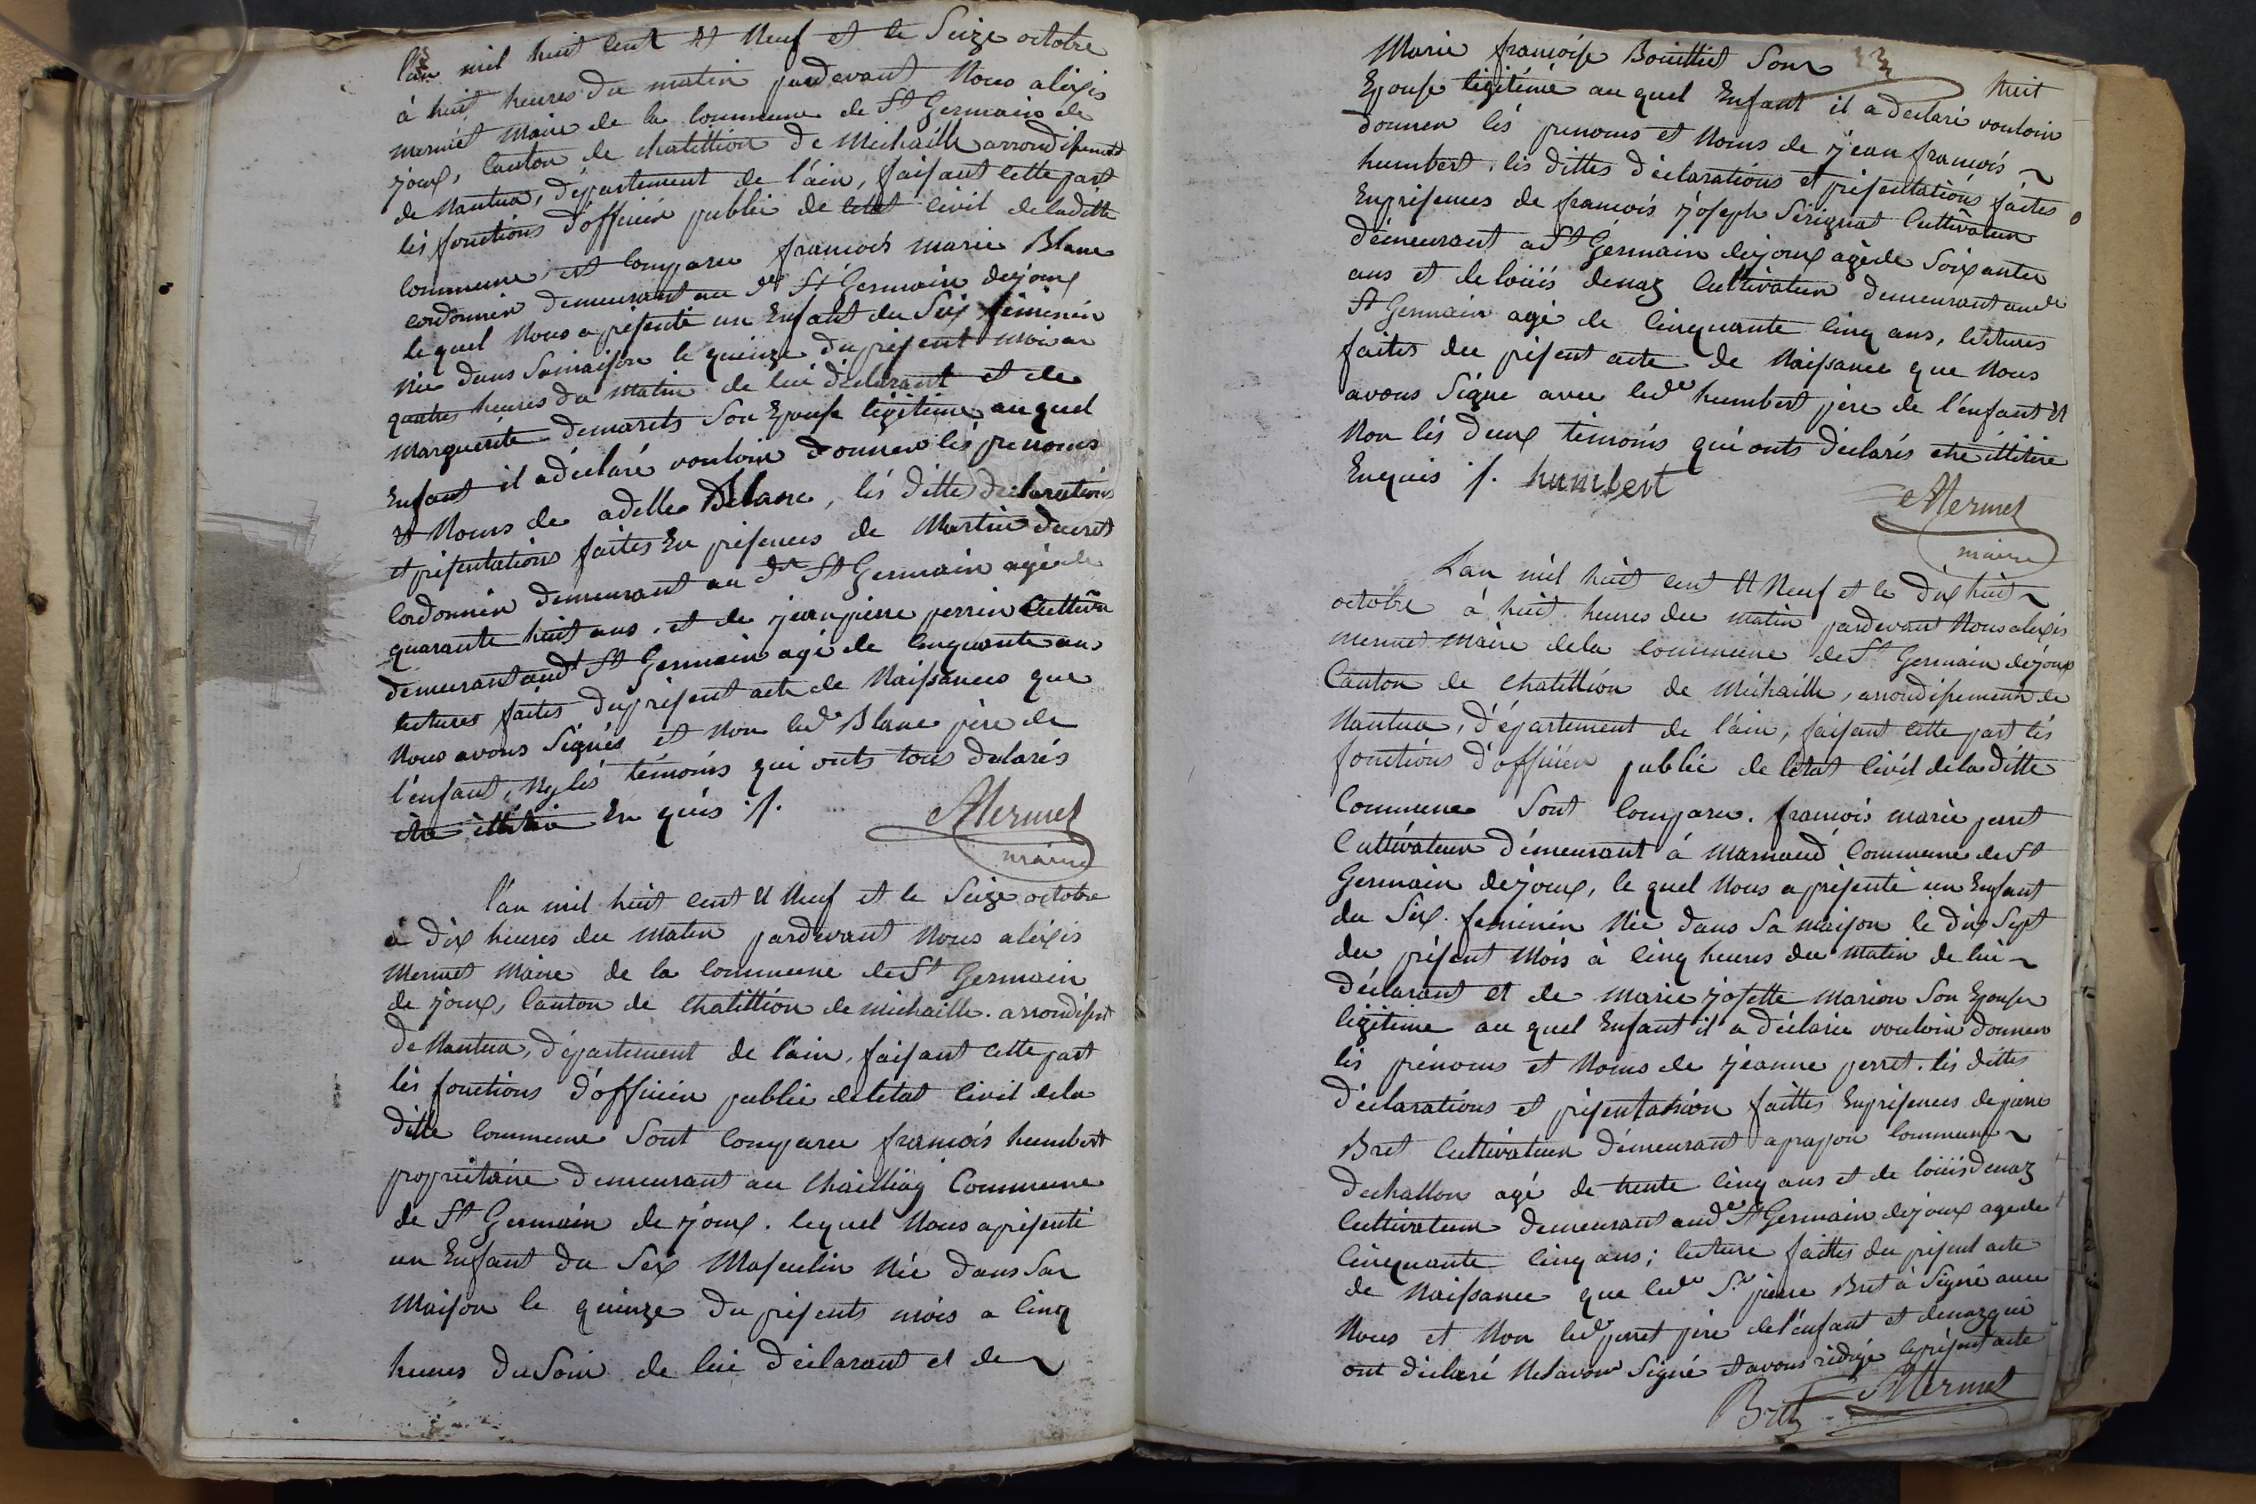 l'an mil huit cent et Neuf et le Seize octobre
à huit heures du matin pardevant Nous aléxis
mermet Maire de la Commune de St Germain de
joux, Canton de chatillion de Michaille arrondissement
de Nantua, département de l'ain, faisant cette part
lés fonctions d'officièr public de letat civil deladitte
Commune est Comparu francois marie Blanc
cordonnier demeurant au dt St Germain dejoux
lequel Nous a présenté un Enfant du Séx féminin
Née dans Samaison le quinze du présent mois a
quatres heures du matin de lui déclarant et de
Marguerite demarets Son Epouse légitime auquel
Enfant il adéclaré vouloir donner lés prenoms
et Noms de adelle Blanc, lés ditte déclarations
et présentations faites En présences de Martin ducret
Cordonnier demeurant au dt St Germain agé de
quarante huit ans, et de jeanpierre perrin Cultiva
demeurant audt St Germain agé de Cinquante ans
lectures faites duprésent acte de Naissances que
Nous avons Signés et Non ledt Blanc père de
l'enfant, Ny lés témoins qui onts tous déclarés
être illétire En quis ./.
AMermet
maire
l'an mil huit cent et Neuf et le Seize octobre
à dix heures du matin pardevant Nous aléxis
Mermet Maire de la Commune de St Germain
de joux, Canton de chatillion de michaille. arrondisst
de Nantua, département de l'ain, faisant cette part
lés fonctions d'officièr public deletat Civil dela
ditte Commune Sont Comparu francois humbert
propriétaire demeurant au Commune
de St Germain de joux. lequel Nous aprésenté
un Enfant du Séx Masculin Née dans Sa
Maison le quinze du présents mois a Cinq
heures du Soir de lui déclarant et de ~
Marie francoise Bouillet Son
huit
Epouse légitime au quel Enfant il a déclaré vouloir
donner lés prenoms et Noms de jean francois ~
humbert. lés dittes déclarations et présentations faites
Enprésences de francois joseph Sérignat Cultivateur
démeurant a St Germain dejoux agé de Soixantes
ans et de loüis denaz Cultivateur demeurant audt
St Germain agé de Cinquante Cinq ans, léctures
faites du présent acte de Naissance que Nous
avons Signé avec ledt humbert père de l'enfant et
Non lés deux témoins qui onts déclarés etre illétire
Enquis ./. humbert
AMermet
maire
Lan mil huit cent et Neuf et le dix huit ~
octobre à huit heures du matin pardevant Nous aléxis
mermet Maire dela commune de St Germain dejoux
Canton de chatillion de Michaille, arrondissement de
Nantua, département de l'ain, faisant cette part lés
fonctions d'officièr public de letat Civil deladitte
Commune Sont Comparu. francois marie perret
Cultivateur démeurant à Marnaud Commune de St
Germain dejoux, le quel Nous a présenté un Enfant
du Séx. feminin Née dans Sa maison le dix Sept
du présent Mois à Cinq heures du matin de lui ~
déclarant et de marie josette marion Son Epouse
légitime au quel Enfant il a déclarée vouloir donner
lés prénoms et Noms de jéanne perret. lés dittes
déclarations et présentation faittes Enprésences de pierre
Bret Cultivateur démeurant a Commune ~
dechallon agé de trente Cinq ans et de loüis denaz
Cultivateur demeurant audt St Germain dejoux agé de
Cinquante Cinq ans; lecture faittes du présent acte
de Naissance que ledt Sr pierre Bret à Signé avec
Nous et Non ledt perret père del'énfant et denaz qui
ont déclaré Nesavoir Signé et avons rédigé leprésent acte
Bret AMermet